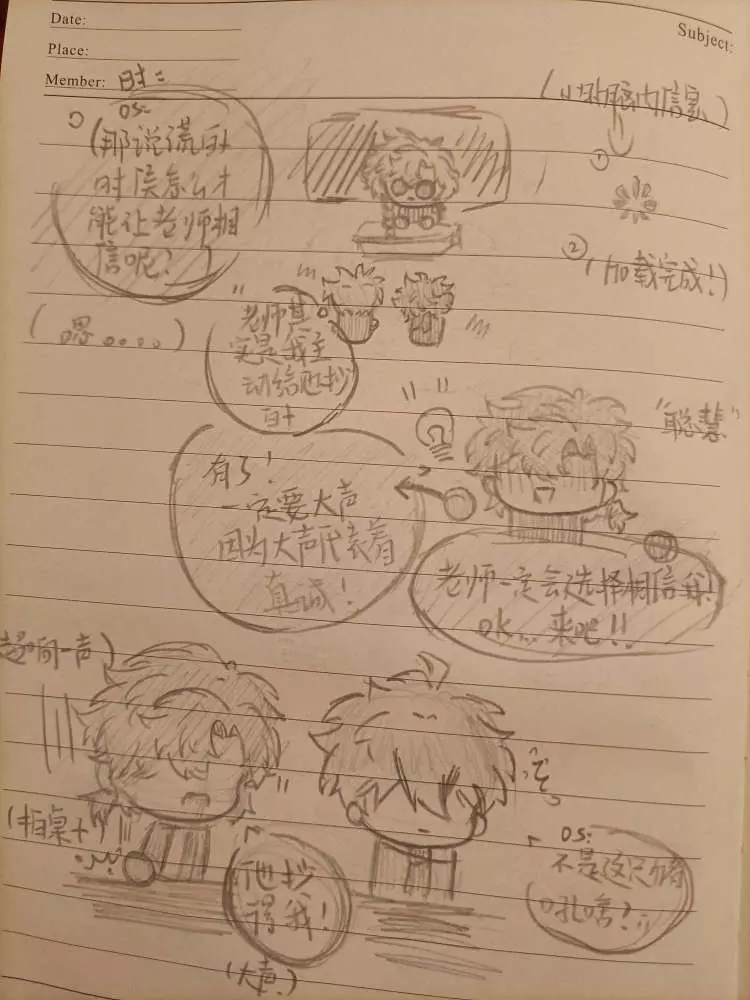 Date:
Subject:
Place:
Member:
时:
OS:
(那说谎的
时候怎么才
能让老师相
信呢?)
(小时脑内信息)
①
②
加载完成!)
(嗯....)
老师其
实是我主
动给他抄
的
"聪慧"
有了!
一定要大声
因为大声代表着
真诚!
老师一定会选择相信我!
OK...来吧!!
超响一声)
(拍桌
他抄
得我!
(大声)
OS:
不是这只
吼啥?